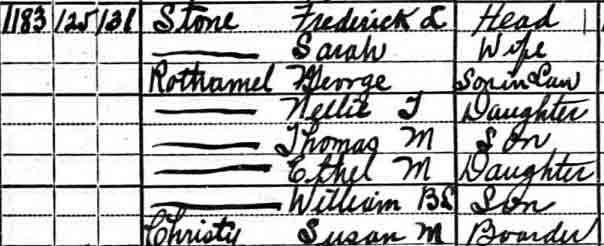 1183 125 131 Stone Frederick L Head
—— Sarah Wife
Rothamel George Son in Law
—— Nellie T Daughter
—— Thomas M Son
—— Ethel M Daughter
—— William BL Son
Christy Susan M Boarder